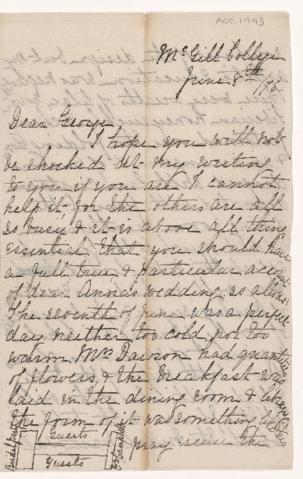 ACC. 1943
McGill College
June 8th /76
Dear George,
I hope you will not
be shocked at my writing
to you if you are I cannot
help it for the others are all
so busy & it is above all things
essential that you should have
a full true & particular account
of dear Anna's wedding so allons
The seventh of June was a perfect
day neither too cold nor too
warm Mrs Dawson had quantities
of flowers & the breakfast was
laid in the dining room &
the form of it was something
Guests
pray excuse the
Guests